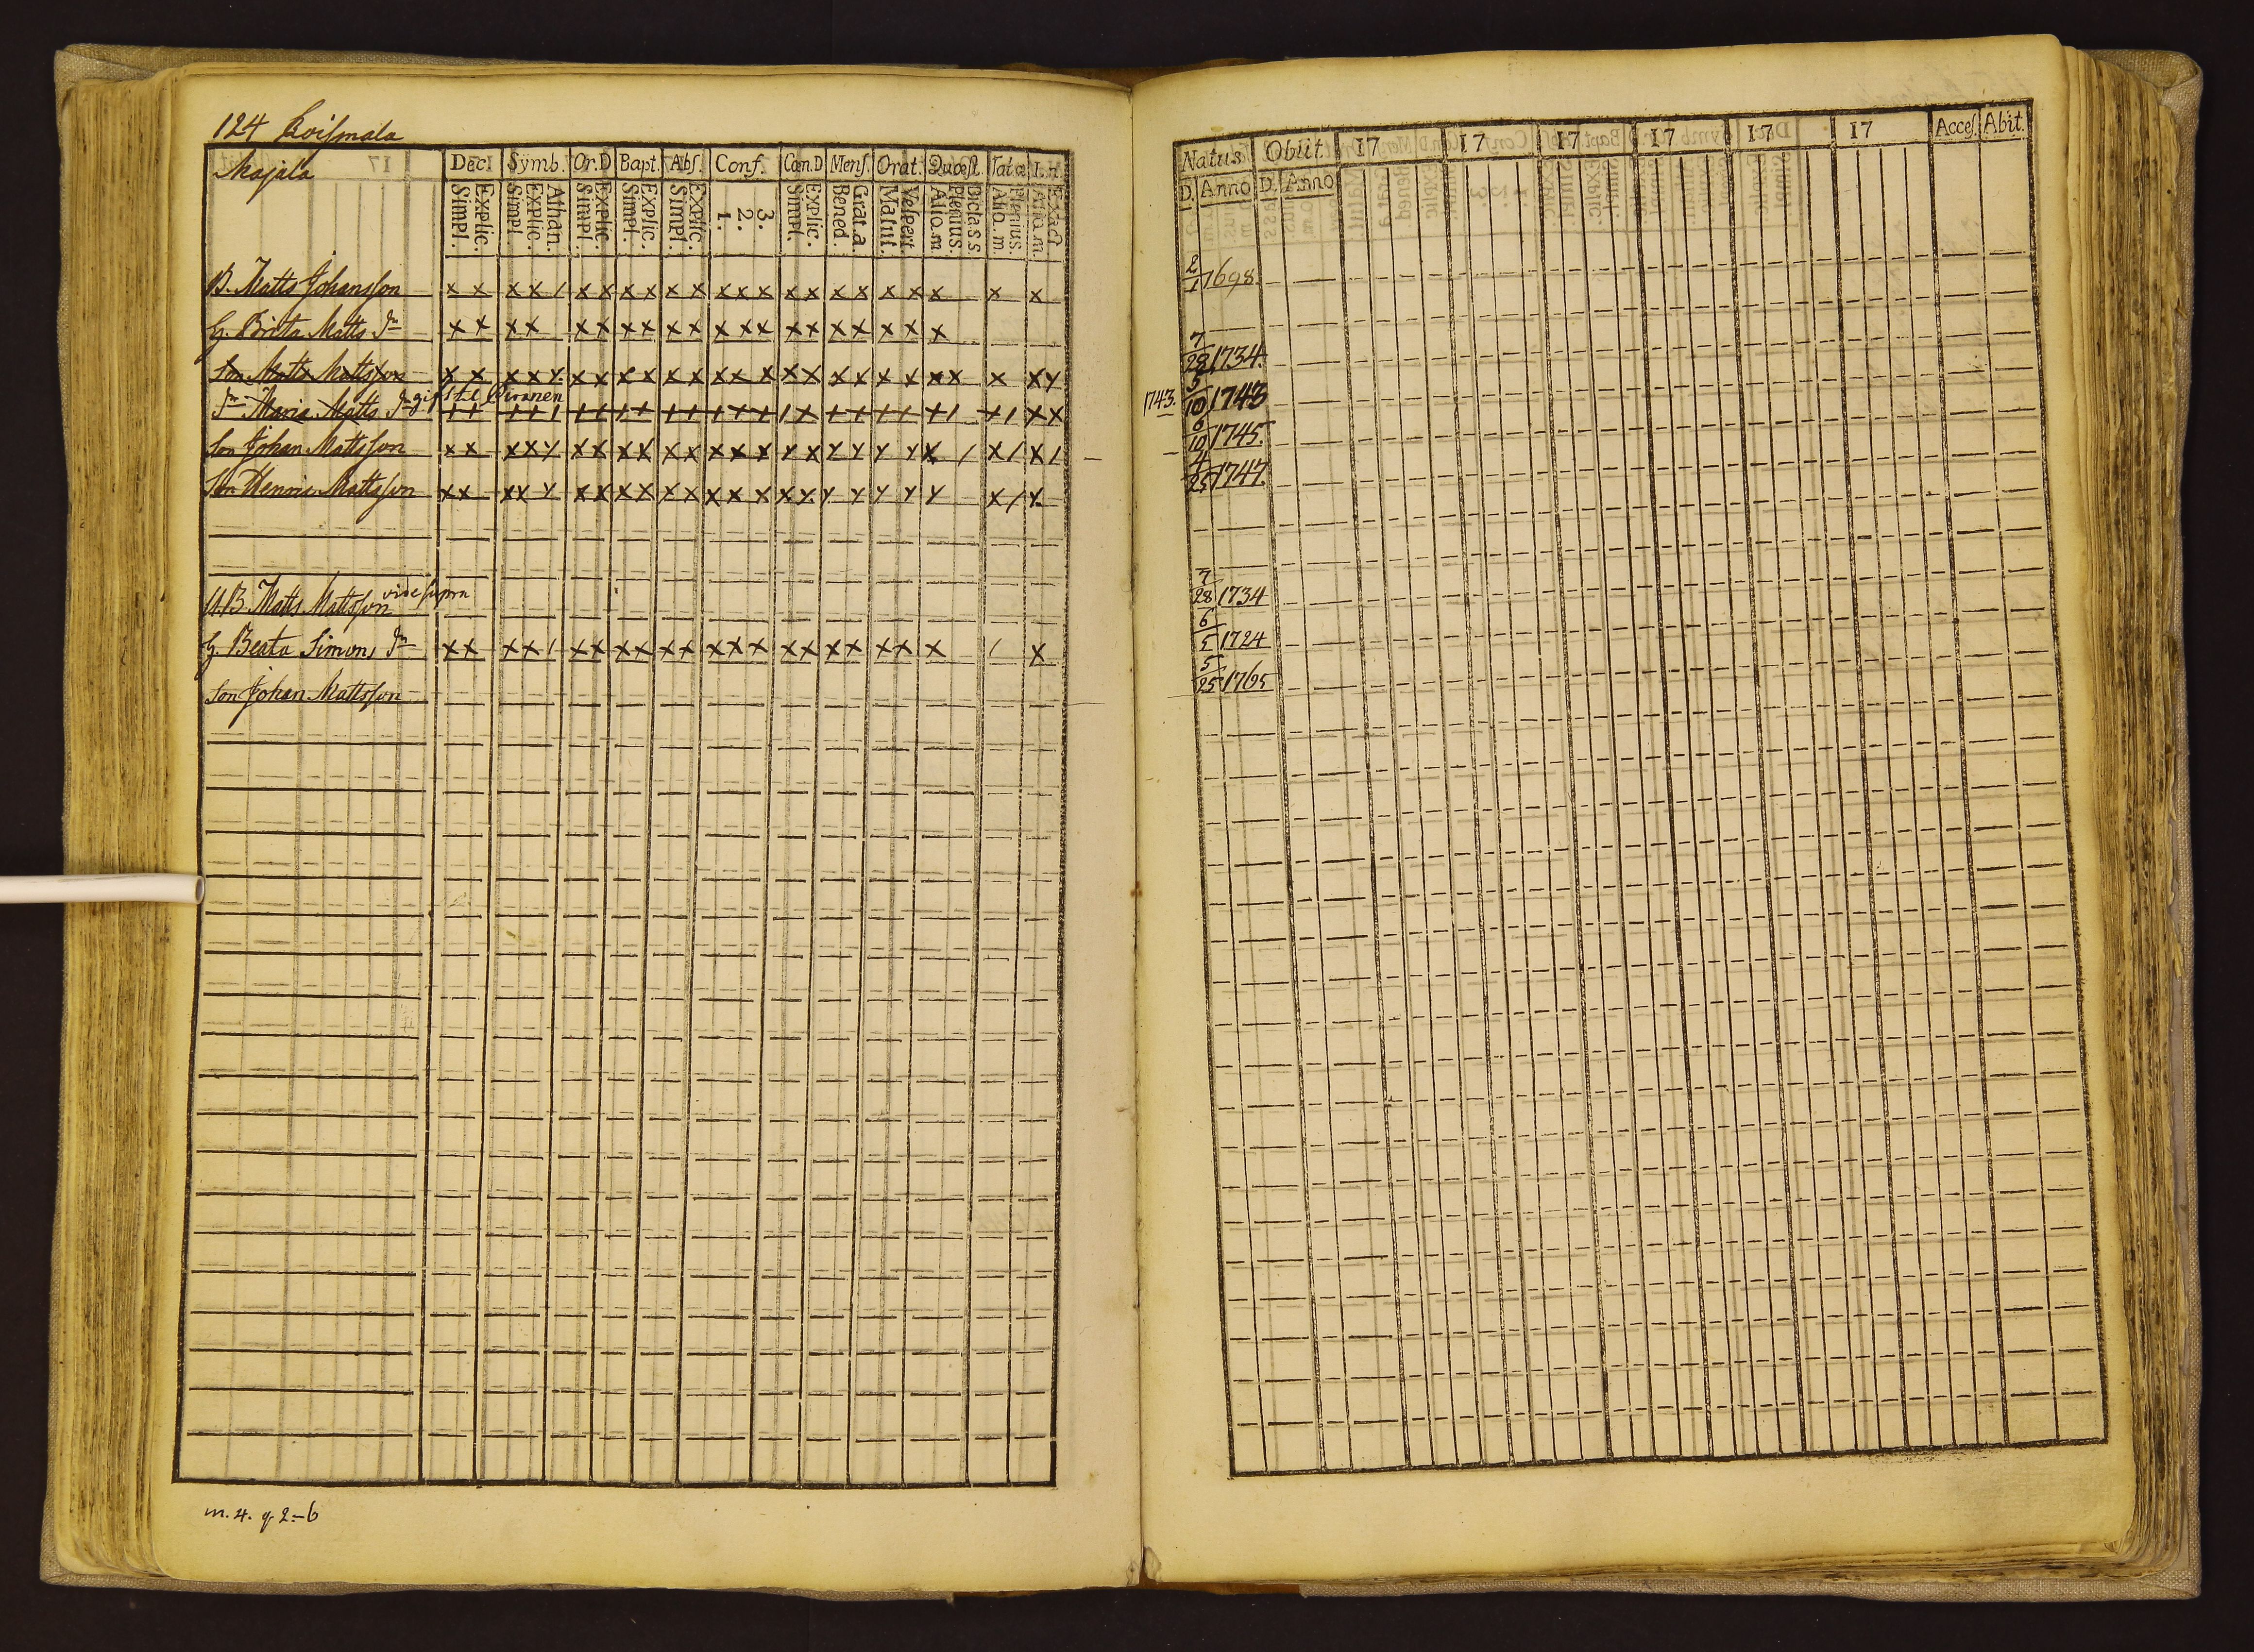 124 Koismala
Majala
Decl. Symb. Or.D Bapt. Abs. Conf. Cœn.D Mens. Orat. Quæst. Tat.œ
Explic. Simpl. Athan. Explic. Simpl. Explic. Simpl. Explic. Simpl. Explic. Simpl. 3. 2. 1. Explic. Simpl. Grat.a. Bened. Vespert. Matut. Dicta s.s. Plenius. Alio.m. Plenius. Alio.m. Exact Alio.m.
B. Matts Johansson x x x x / x x x x x x x x x x x x x x x x x x
H. Brita Matts dr x x x x x x x x x x x x x x x x x x x x
Son Matts Mattsson
dr Maria Matts dr gift
Son Johan Mattsson
Son Henric Mattsson
B. Matts Mattsson vide supra
H. Beata Simons dr x x x x / x x x x x x x x x x x x x x x x / x
Son Johan Mattsson
m. 4. q 2=6
Natus Obiit 17 17 17 17 17 17 Acces. Abit.
D. Anno D. Anno
2/1 1698.
7/28 1734.
1743. 5/10 1743
6/10 1745.
4/25 1747.
7/28 1734
6/5 1724
5/25 1765